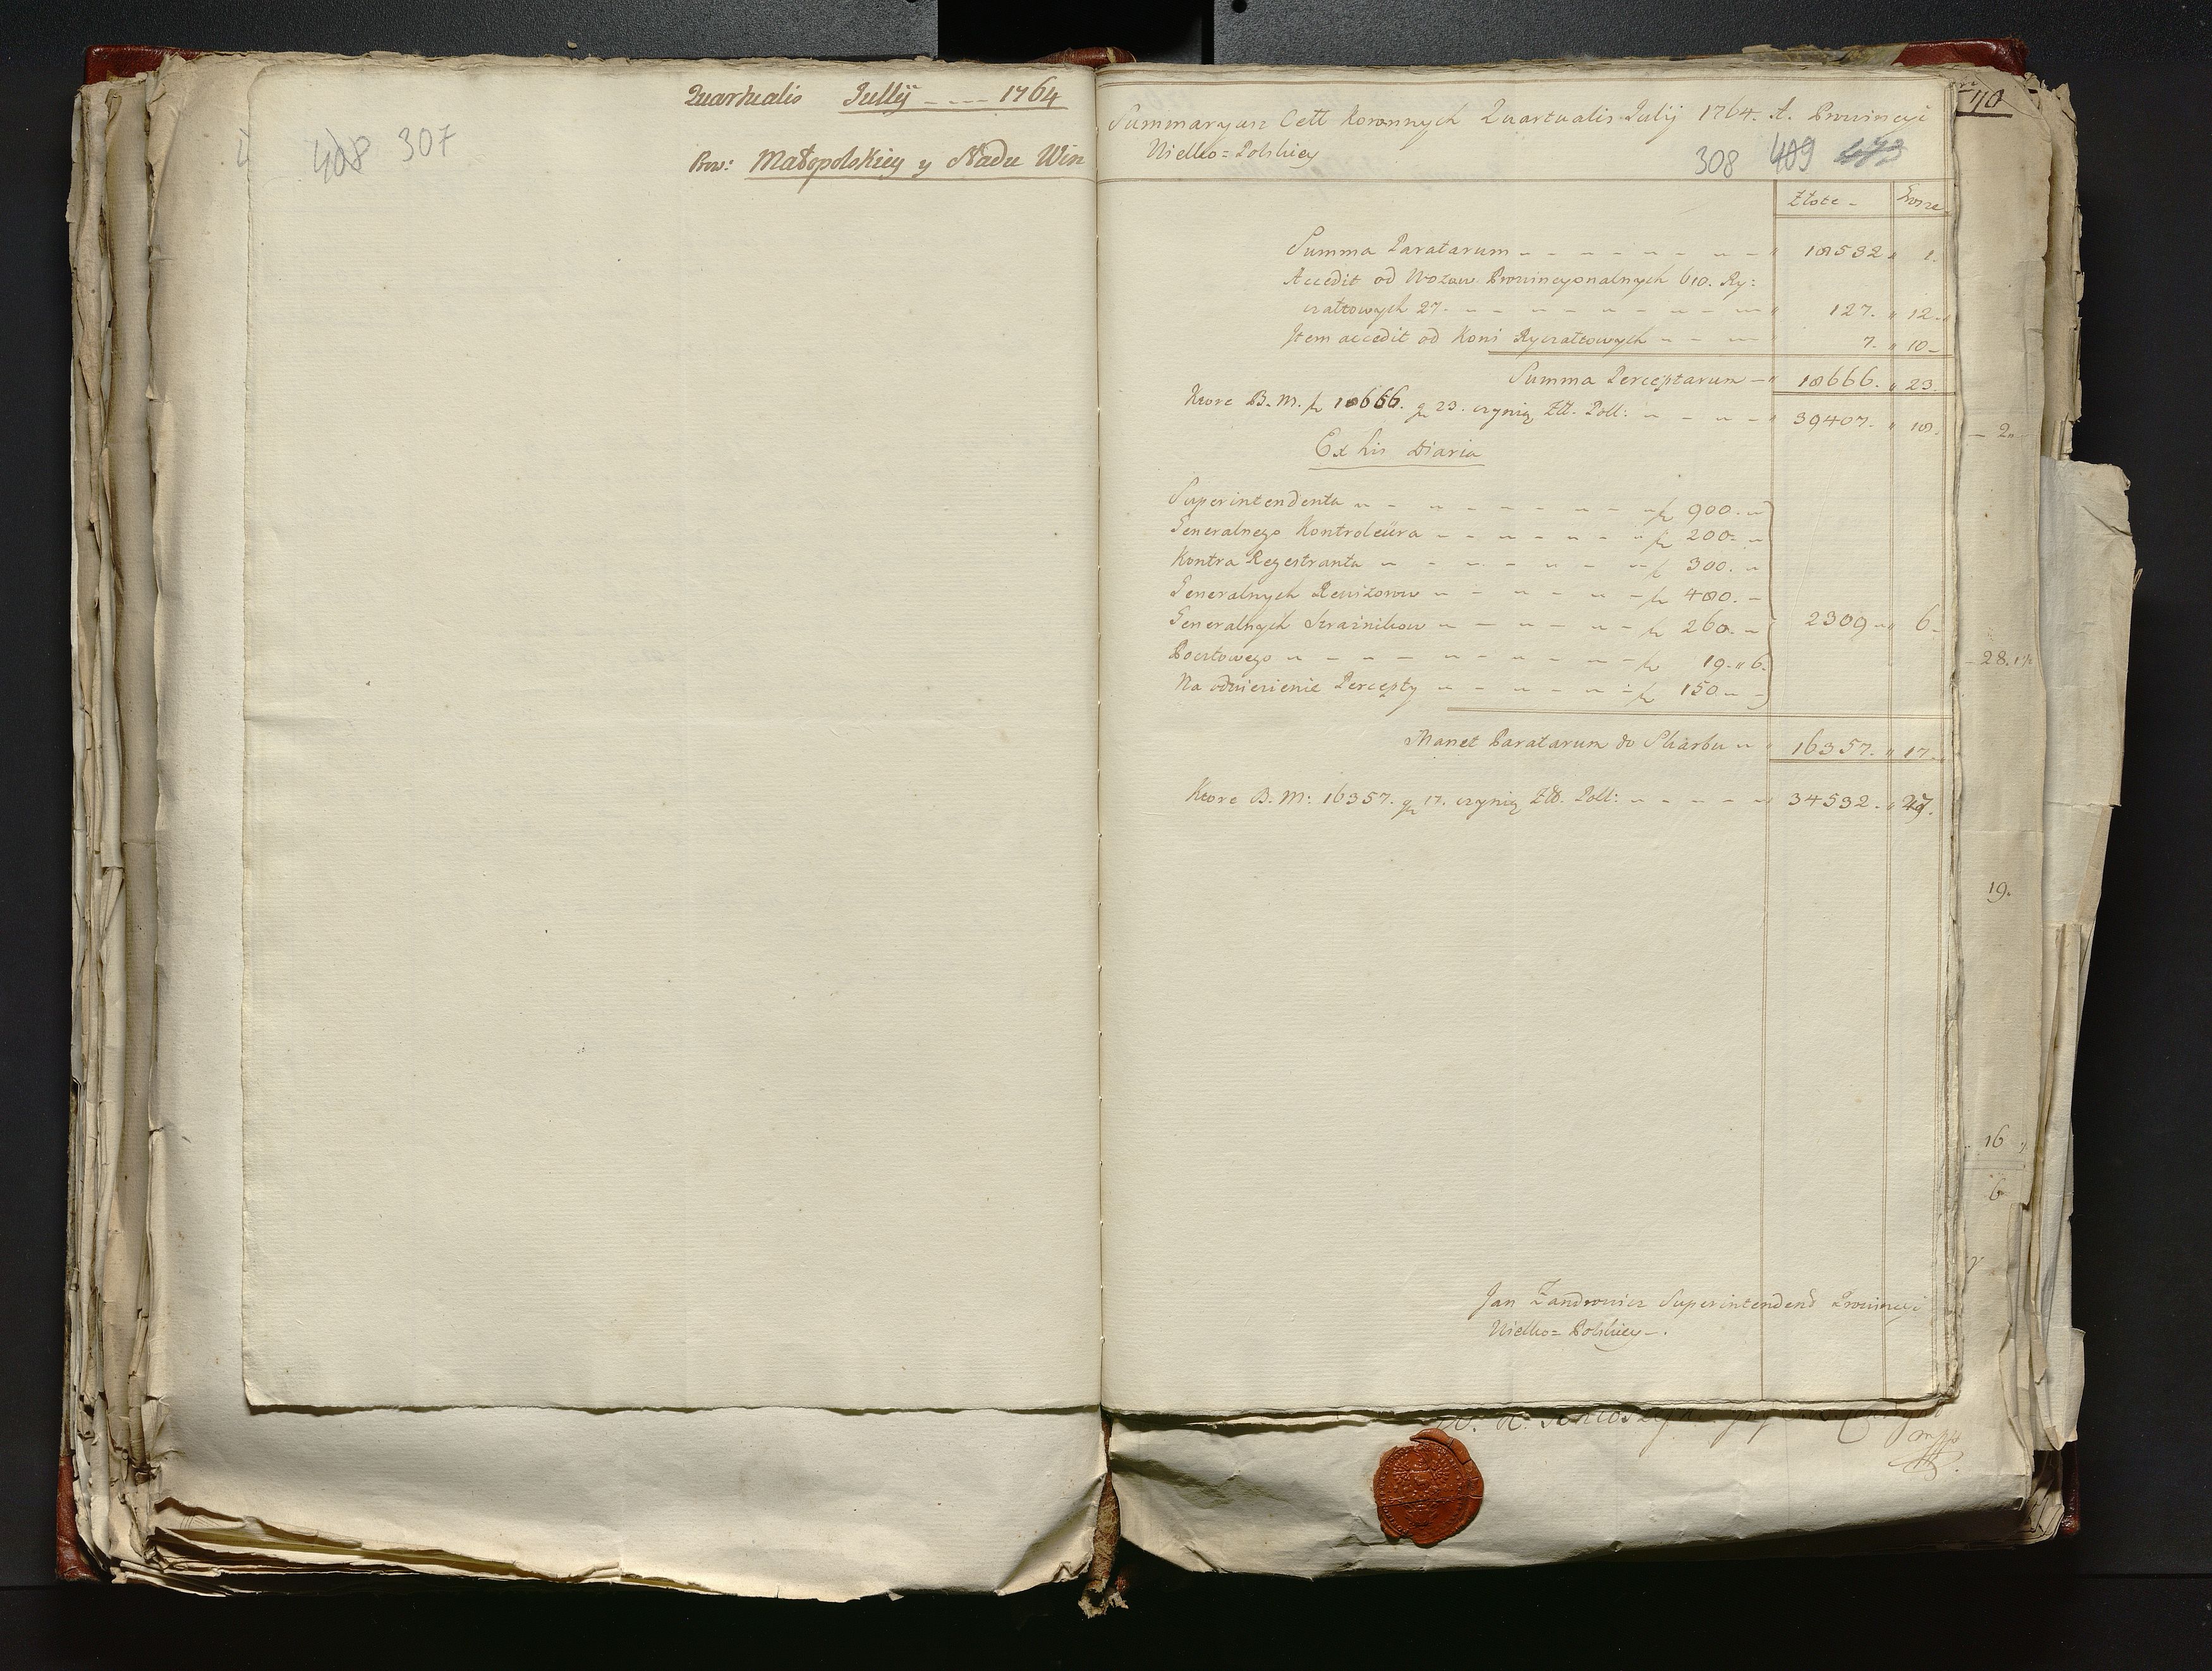 Quartualis Jullÿ - - - - 1764
408 307
Prow: Małopolskiey y Nadu Win
Summaryusz Cell Koronnych Quartualis Julij 1764. A. Prowincyi
Wielko=Polskiey
308 409 473
Złote - Grosze
Summa Paratarum - - - 18532 " 1.
Accedit od Wozow Prowincyonalnych 610. Ry:
czałtowych 27. - - - 127. " 12.
Item accedit od Koni Ryczałtowych - - - 7. " 10 -
Summa Perceptarum - " 18666. " 23.
Ktore B. M. f 18666. g 23. czynią Zł. Poll: - - - 39407. " 18.
Ex his Diaria
Superintendenta - - - f 900. -
Generalnego Kontroleüra - - - f 200. -
Kontra Regestranta - - - f 300. -
Generalnych Rewizorow - - - f 480. -
Generalnych Strażnikow - - - f 260. - 2309 - 6 -
Pocztowego - - - f 19. " 6.
Na odwiezienie Percepty - - - f 150. -
Manet Paratarum do Skarbu - " 16357. " 17.
Ktore B. M: 16357. g 17. czynią Zł. Poll: - - - 34532. " 27.
Jan Zandrowicz Superintendent Prowincyi
Wielko=Polskiey -.
- 2 -
- 28.
19.
16
6
mpp